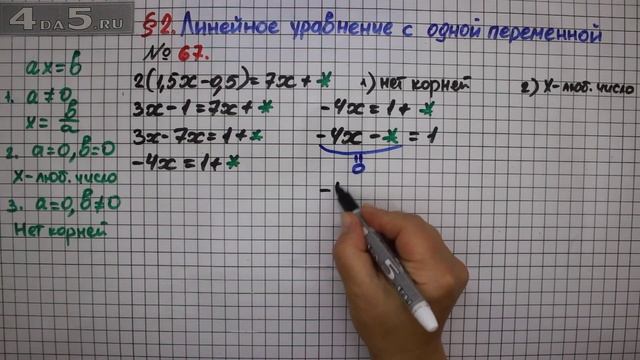 4DA5.RU
§2. Линейное уравнение с одной переменной
№ 67.
ax=b
1. a≠0
x= b/a
2. a=0, b=0
X-люб. число
3. a=0, b≠0
Нет корней
2(1,5x-0,5)=7x+*
3x-1=7x+*
3x-7x=1+*
-4x=1+*
1) нет корней
-4x=1+*
-4x-*=1
0
-
2) X-люб. число